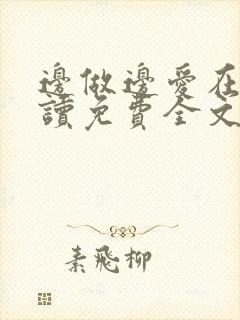 邊做邊愛在
讀免費全文
素飛柳